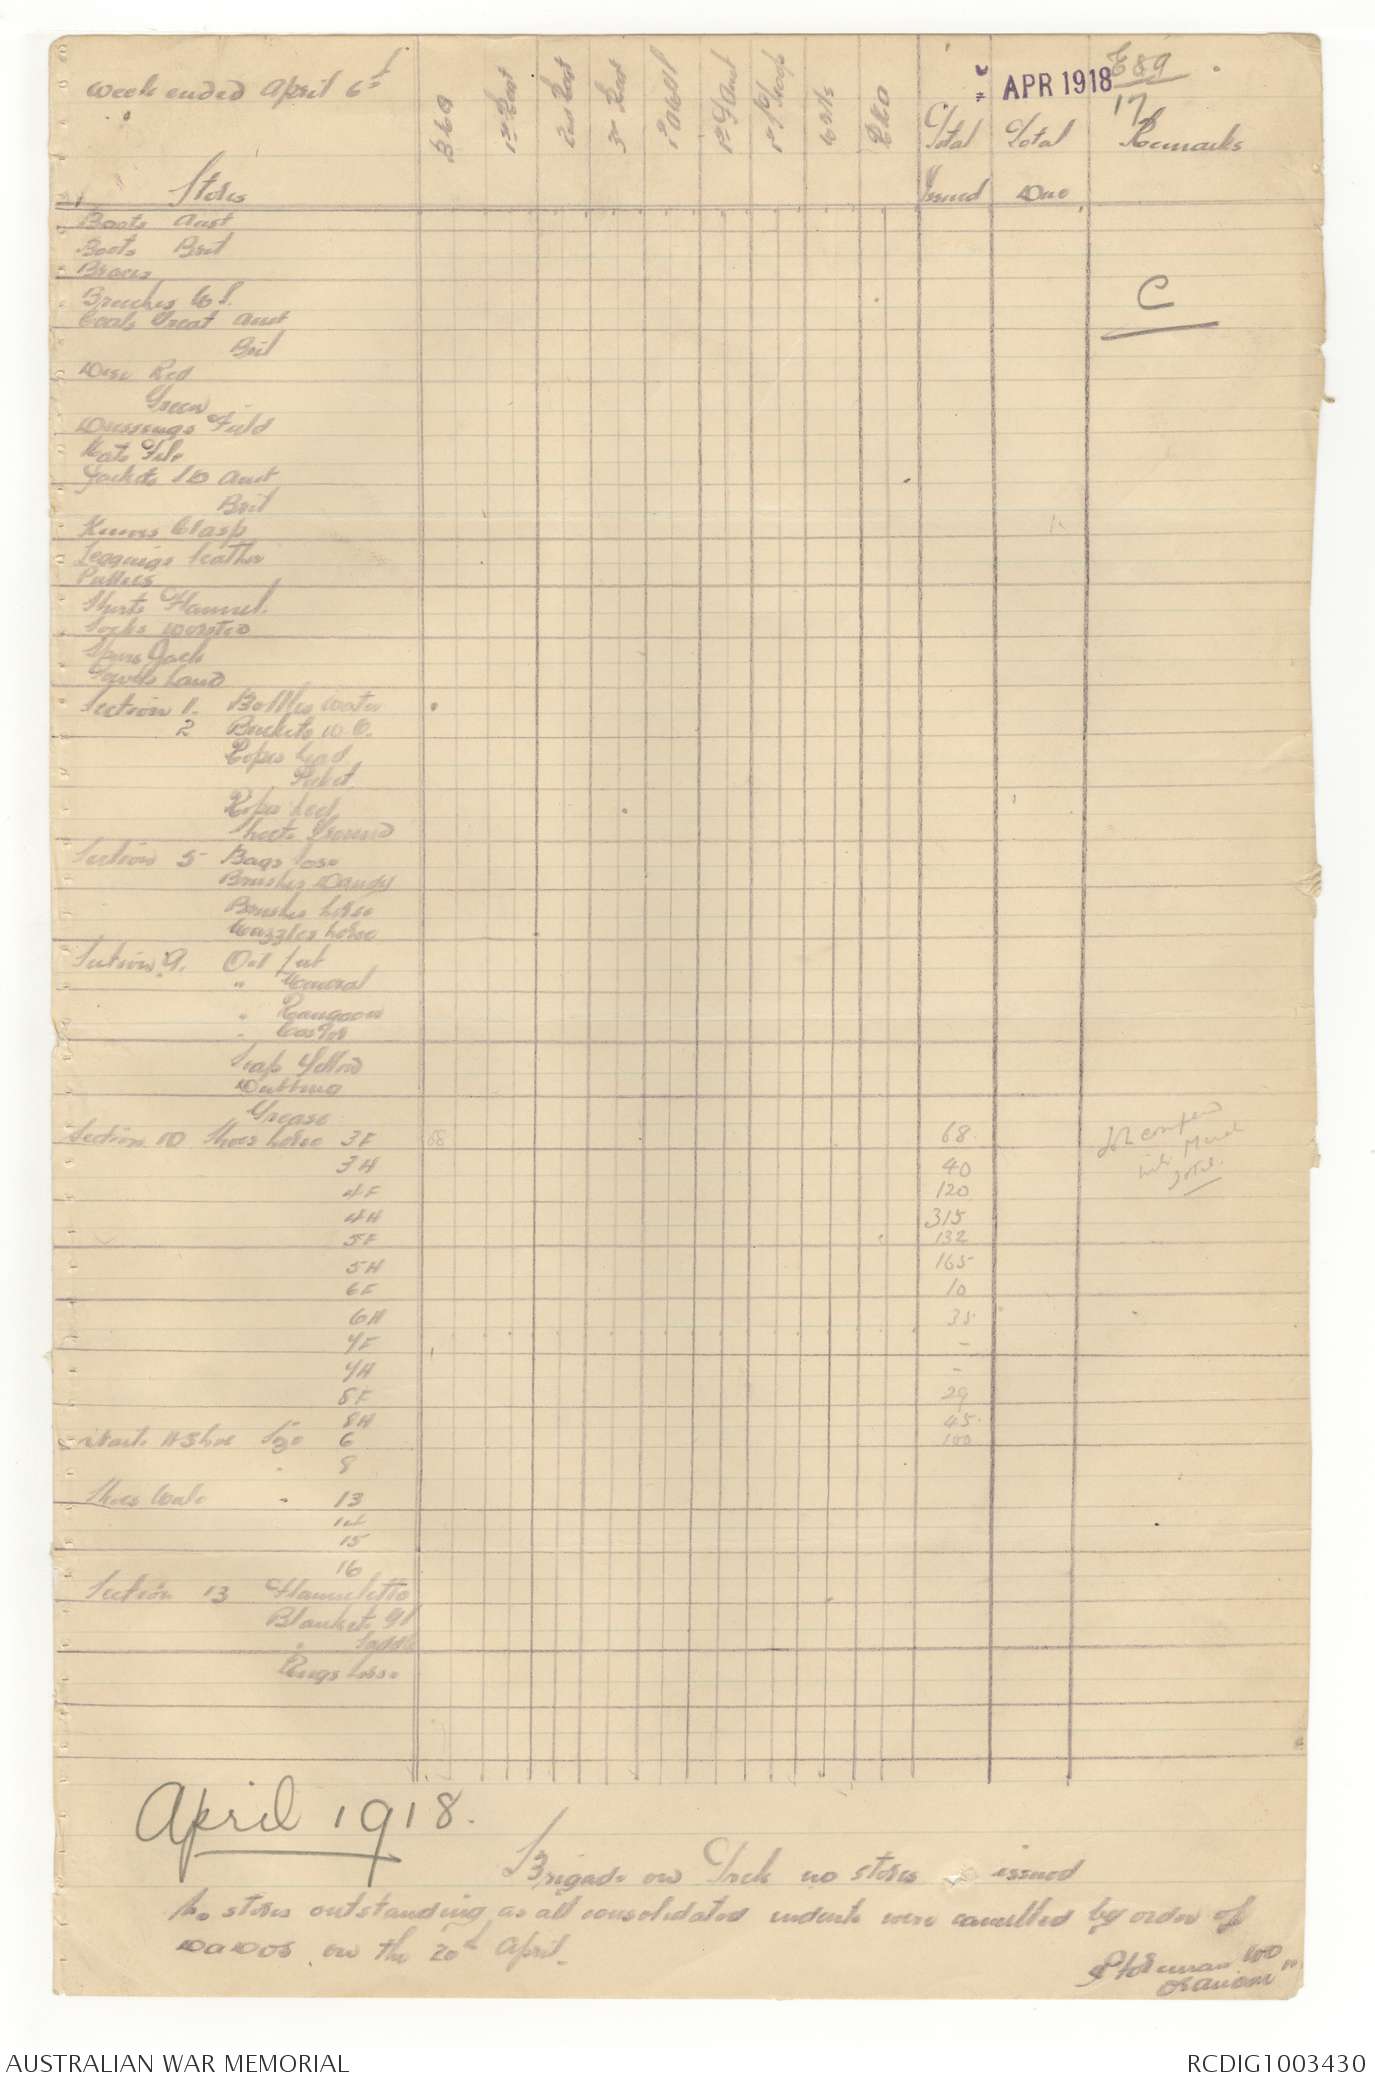 week ended April 6th
APR 1918
E89
17
BHQ
1st Regt
2nd Regt
3rd Regt
Total Issued
Total Due
Remarks
Stores
Boots Aust
Boots Brit
Braces
Breeches
Coats Great Aust
Brit
C
Disc Red
Green
Dressings Field
Hats Felt
Jackets SD Aust
Brit
Knives Clasp
Leggings leather
Puttees
Shirts Flannel
Socks worsted
Spurs Jack
Towels hand
Section 1. Bottles water
2 Buckets W.C.
Ropes head
Picket
Ropes heel
Sheets Ground
Section 5 Bags nose
Brushes Dandy
Brushes horse
horse
Section 9. Oil
" Mineral
" Rangoon
" Castor
Soap Yellow
Dubbing
Grease
Section 10 Shoes horse 3F 68 68
3H 40
4F 120
4H 315
5F 132
5H 165
6F 10
6H 35
7F -
7H -
8F 29
8H 45
Nails H Shoe Size 6 100
" 8
Shoes " 13
14
15
16
Section 13 Flannelette
Blankets GS
" Saddle
Rugs horse
April 1918.
Brigade on Trek no stores issued
No stores outstanding as all consolidated indents were cancelled by order of
DADOS on the 20th April.